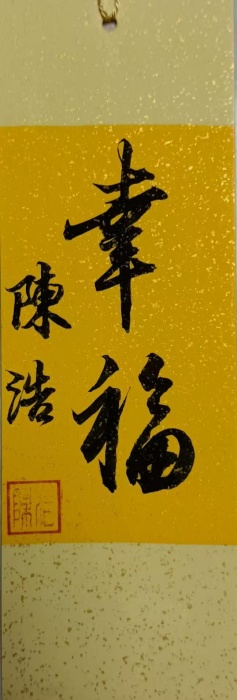 幸福
陳浩